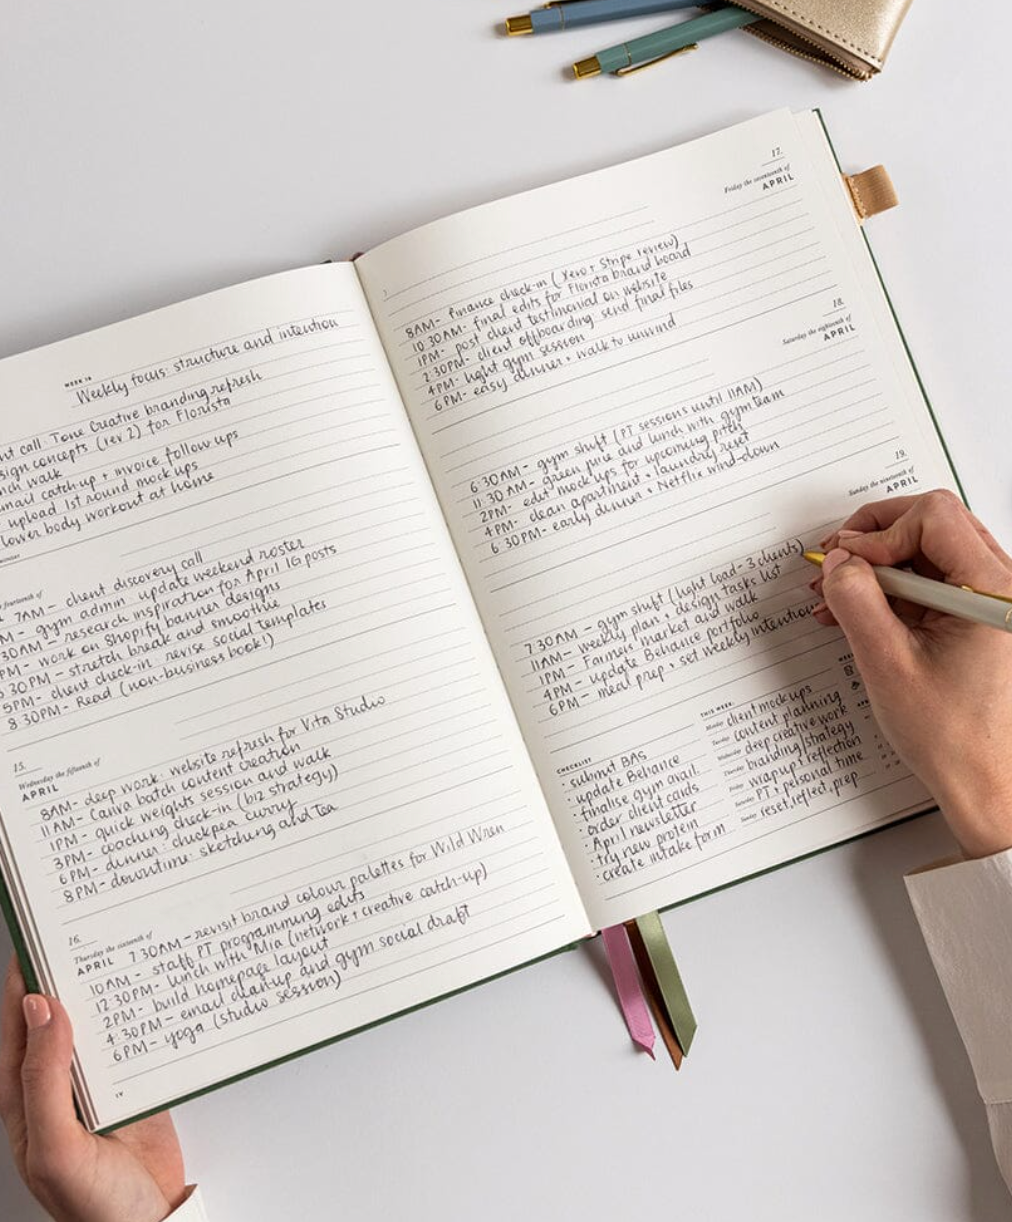 WEEK 16
Weekly focus: structure and intention
call Tone Creative branding refresh
concepts (rev 2) for Florista
walk
catch-up + invoice follow ups
upload 1st round mock ups
lower body workout at home
fourteenth of
7AM- client discovery call
gym admin: update weekend roster
research inspiration for April IG posts
work on Shopify banner designs
30PM- stretch break and smoothie
5PM- client check-in: revise social templates
8 30PM- Read (non-business book!)
15.
Wednesday the fifteenth of
APRIL
8AM- deep work: website refresh for Vita Studio
11AM- Canva batch content creation
1PM- quick weights session and walk
3PM- coaching check-in (biz strategy)
6PM- dinner: chickpea curry
8PM- downtime: sketching and tea
16.
Thursday the sixteenth of
APRIL
7 30AM- revisit brand colour palettes for Wild Wren
10AM- staff PT programming edits
12:30PM- lunch with Mia (network + creative catch-up)
2PM- build homepage layout
4:30PM- email clean-up and gym social draft
6PM- yoga (studio session)
17.
Friday the seventeenth of
APRIL
8AM- finance check-in (Xero + Stripe review)
10 30AM- final edits for Florista brand board
1PM- post client testimonial on website
2:30PM- client offboarding send final files
4PM- light gym session
6PM- easy dinner + walk to unwind
18.
Saturday the eighteenth of
APRIL
6:30AM- gym shift (PT sessions until 11AM)
11:30AM- green juice and lunch with gym team
2PM- edit mock ups for upcoming pitch
4PM- clean apartment + laundry reset
6:30PM- early dinner + Netflix wind-down
19.
Sunday the nineteenth of
APRIL
7 30AM - gym shift (light load- 3 clients)
11AM- weekly plan + design tasks list
1PM- Farmers market and walk
4PM- update Behance portfolio
6PM- meal prep + set weekly intention
CHECKLIST
· submit BAS
· update Behance
· finalise gym avail.
· order client cards
· April newsletter
· try new protein
· create intake form
THIS WEEK:
Monday client mock ups
Tuesday content planning
Wednesday deep creative work
Thursday branding/strategy
Friday wrap up + reflection
Saturday PT + personal time
Sunday reset, reflect, prep